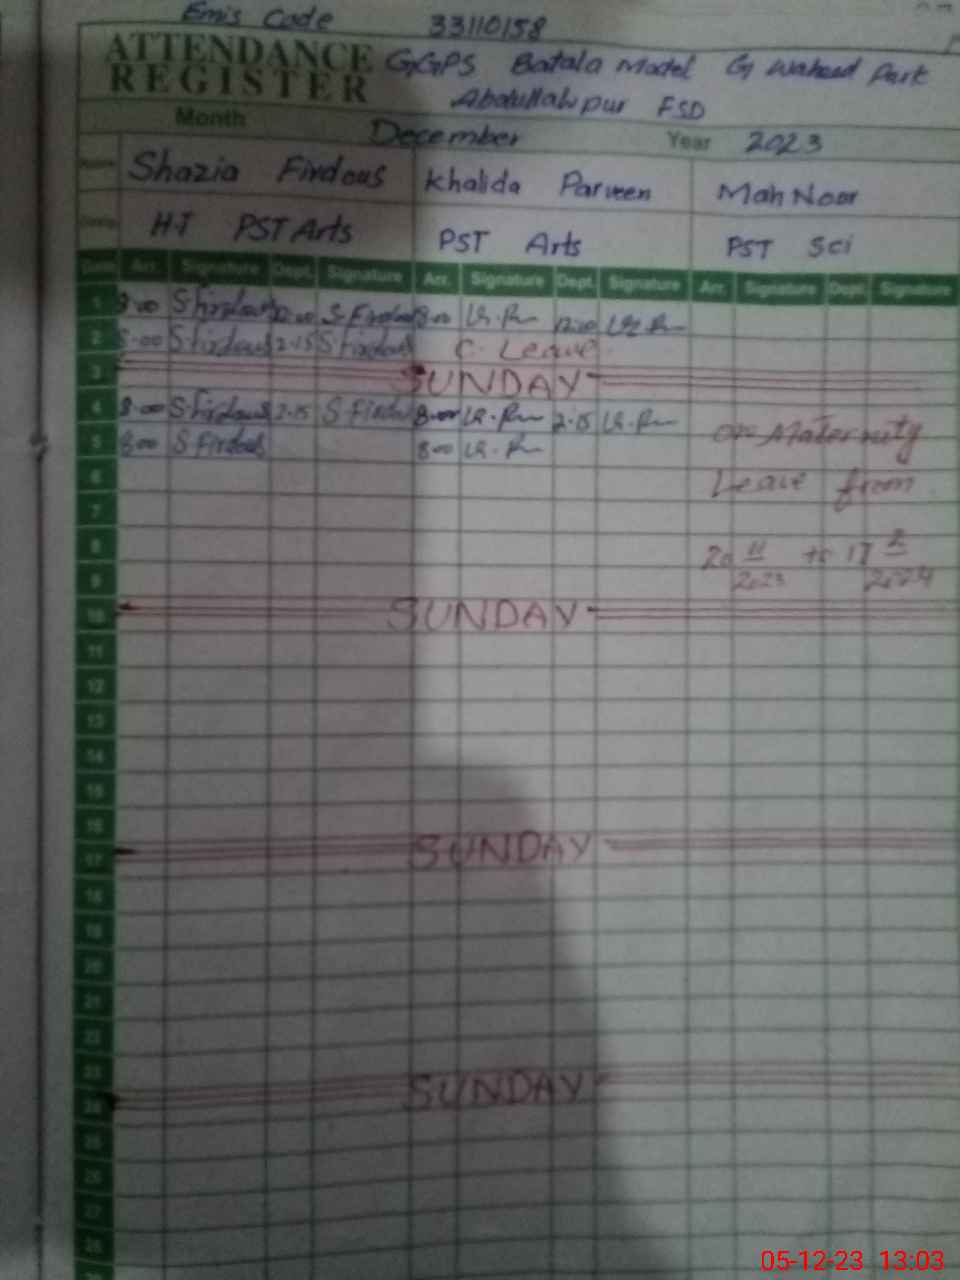 Emis Code 33110158
ATTENDANCE REGISTER
GGPS Batala Model G Waheed Park
Abdullah pur FSD
Month December Year 2023
Name Shazia Firdous Khalida Parveen Mah Noor
H.T PST Arts PST Arts PST Sci
Date Arr. Signature Dept. Signature Arr. Signature Dept. Signature Arr. Signature Dept. Signature
1 8-00 S firdous 12-00 S Firdous 8-00 12-00
2 8-00 S firdous 2-15 S firdous C. Leave
3 SUNDAY
4 8-00 S firdous 2-15 S Firdous 8-00 2-15 on Maternity
5 8-00 S Firdous 8-00
6 Leave from
7
8 20 11 to 17 2
9 2023 2024
10 SUNDAY
11
12
13
14
15
16
17 SUNDAY
18
19
20
21
22
23
24 SUNDAY
25
26
27
28
05-12-23 13:03